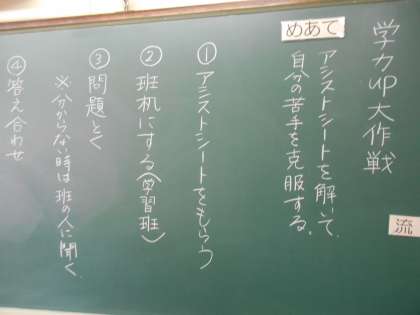 学力up大作戦
めあて
アシストシートを解いて、
自分の苦手を克服する。
流
①アシストシートをもらう
②班机にする(学習班)
③問題とく
※分からない時は班の人に聞く。
④答え合わせ